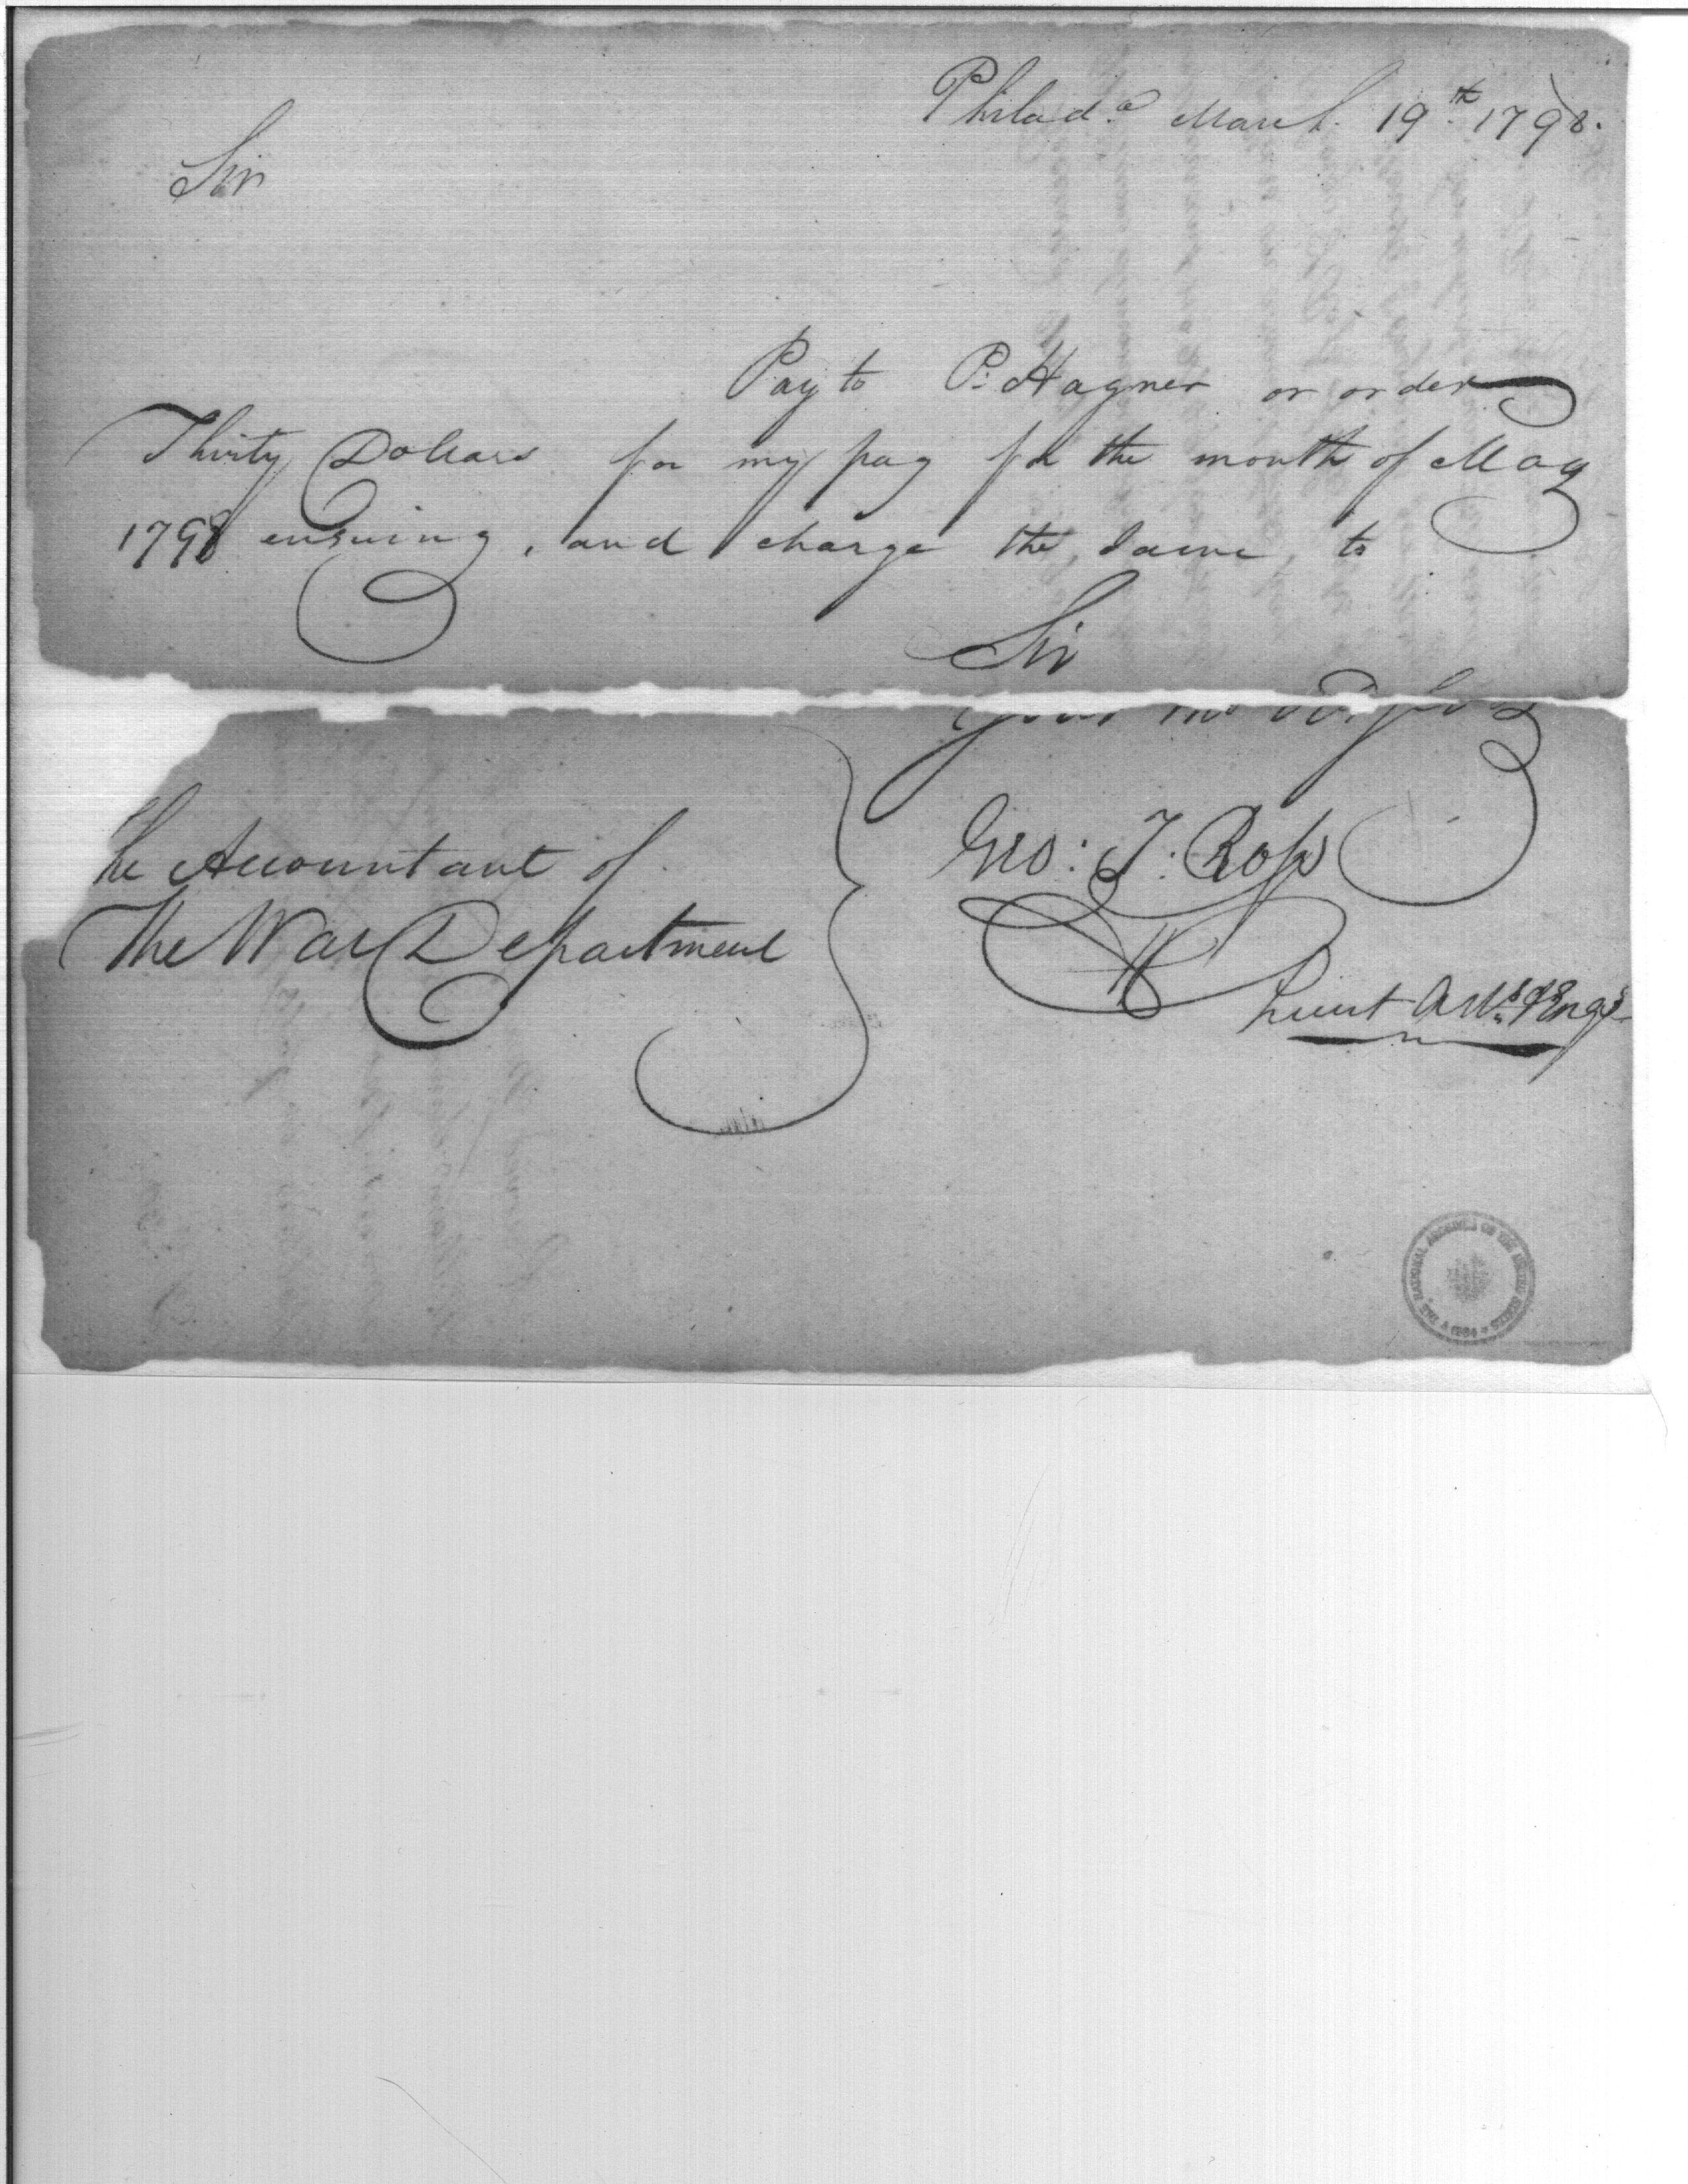 Philad.ª March 19.th 1798.
Sir
Pay to P: Hagner or order
Thirty Dollars for my pay for the month of May
1798 ensuing, and charge the same, to
Sir
Your
Geo: T: Ross
Lieut Arts & Engs
The Accountant of
The War Department
THE NATIONAL ARCHIVES OF THE UNITED STATES * 1934 *